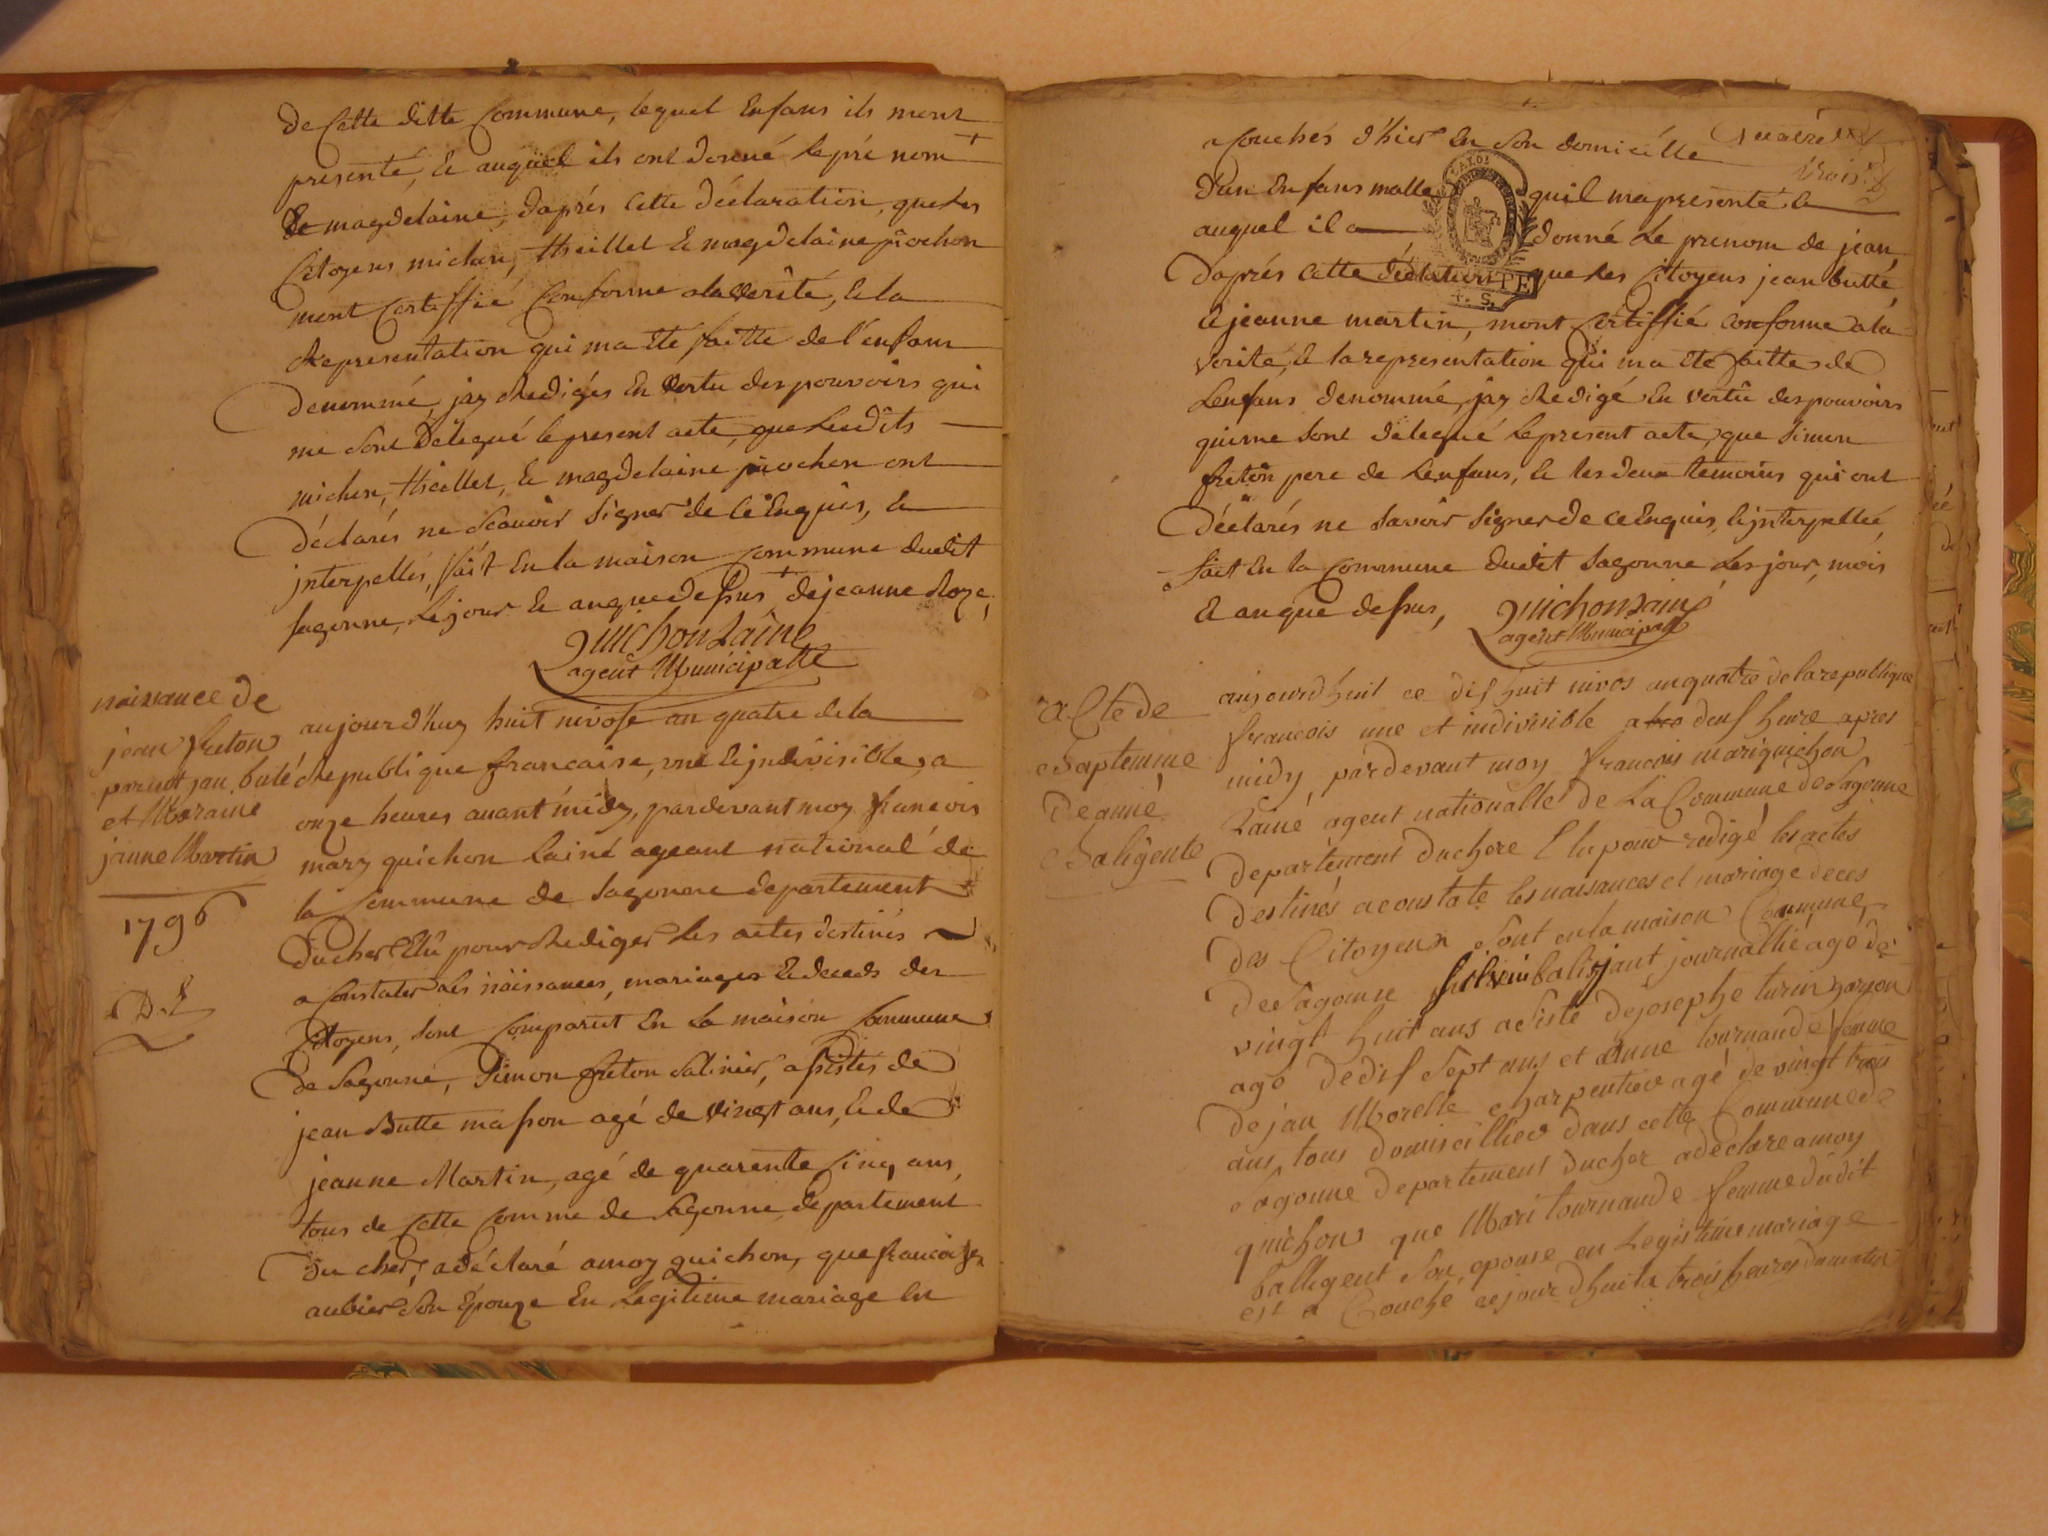 de cette ditte Commune, lequel Enfans ils mont
presenté, & auquel ils ont donné le pré nom +
de magdelaine, d'aprés Cette déclaration, que les
Citoyens michon, theillet & magdelaine piochon
mont Certiffié Conforme a la verité, & la
Representation qui ma eté faitte de l'enfans
denommé, jay Redigés En vertu des pouvoirs qui
me sont Délegué le present acte, que lesdits
michon, theillet, & magdelaine piochon ont
déclarés ne Scavoir signer de ce Enquis, &
jnterpellés, fait En la maison Commune dudit
sagonne, le jour & an que dessus + de jeanne Roze,
quichon Lainé
agent Municipalle
naissance de
jean freton
parint jan buté
et Maraine
janne Martin
1796
D. L
aujourd'huy huit nivose an quatre de la
Republique francaise, une & jndivisible, a
onze heures avant midy, pardevant moy francois
mary quichon Lainé ageant national de
la Commune de Sagonne departement
du cher Elû pour Rediger les actes destinés
a Constater les näissances, mariages & deceds des
Citoyens, sont Comparut En la maison Commune
de Sagonne, Simon freton Salinier, assistés de
jean Butte masson agé de vingt ans, & de
jeanne Martin, agé de quarente Cinq ans,
tous de Cette Comme de Sagonne, departement
du cher, a déclaré a moy quichon, que francoise
aubier son Epouze En Legitime mariage En
Couchés d'hier En son domicille
trois
d'un Enfans malle quil ma presenté &
auquel il a donné le prenom de jean,
d'aprés cette déclation que les Citoyens jean butté,
& jeanne martin, mont Certiffié conforme a la
verité, & la representation qui ma eté faitte de
Lenfans denommé, jay Redigé En vertû des pouvoirs
qui me sont délegué le present acte, que simon
freton pere de Lenfans, & les deux temoins qui ont
déclarés ne savoir signer de ce Enquis, & jnterpellé,
fait En la Commune dudit Sagonne Les jour, mois
& an que dessus, quichon Lainé
agent Municipalle
acte de
Baptemme
de anne
Baligente
aujourdhuit ce dis huit nivos an quatre de la republique
francois une et indivisible a deuf heure apres
midy, pardevant moy francois mari quichon
Lainé agent nationalle de La Commune de Sagonne
departement du chere Elu pour redigé les actes
destinés a constate les naisances et mariage deces
des Citoyeux sont en la maison Commune
de Sagonne silvin baligant journallié agé de
vingt huit ans asisté de josephe turin garson
agé de dis sept ans et anne tournande femme
de jan Morelle charpentiee agé de vingt trois
ans tous domiscillies dans cette Commune de
Sagonne departement du cher a déclaré a moy
quichon que Mari tournande femme dudit
balligent son epouse en Legistime mariage
est a Couché ce jour dhuit a trois heures du matin